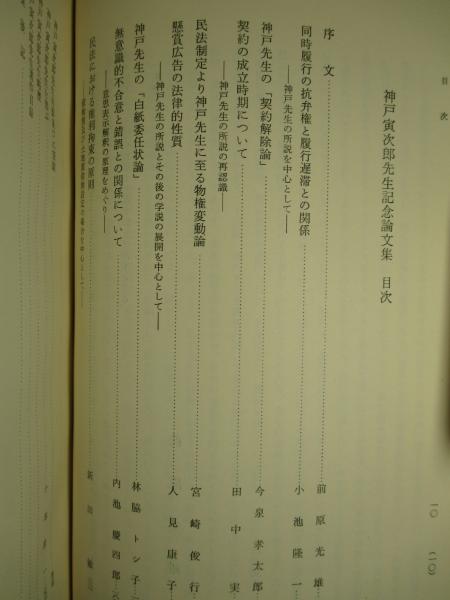 目次
一〇
(一〇)
神戸寅次郎先生記念論文集 目次
序文……前原光雄
同時履行の抗弁権と履行遅滞との関係……小池隆一
――神戸先生の所説を中心として――
神戸先生の「契約解除論」……今泉孝太郎
契約の成立時期について……田中実
――神戸先生の所説の再認識――
民法制定より神戸先生に至る物権変動論……宮崎俊行
懸賞広告の法律的性質……人見康子
――神戸先生の所説とその後の学説の展開を中心として――
神戸先生の「白紙委任状論」……林脇トシ子
無意識的不合意と錯誤との関係について……内池慶四郎
――意思表示解釈の原理をめぐり――
民法における権利拘束の原則……新田敏